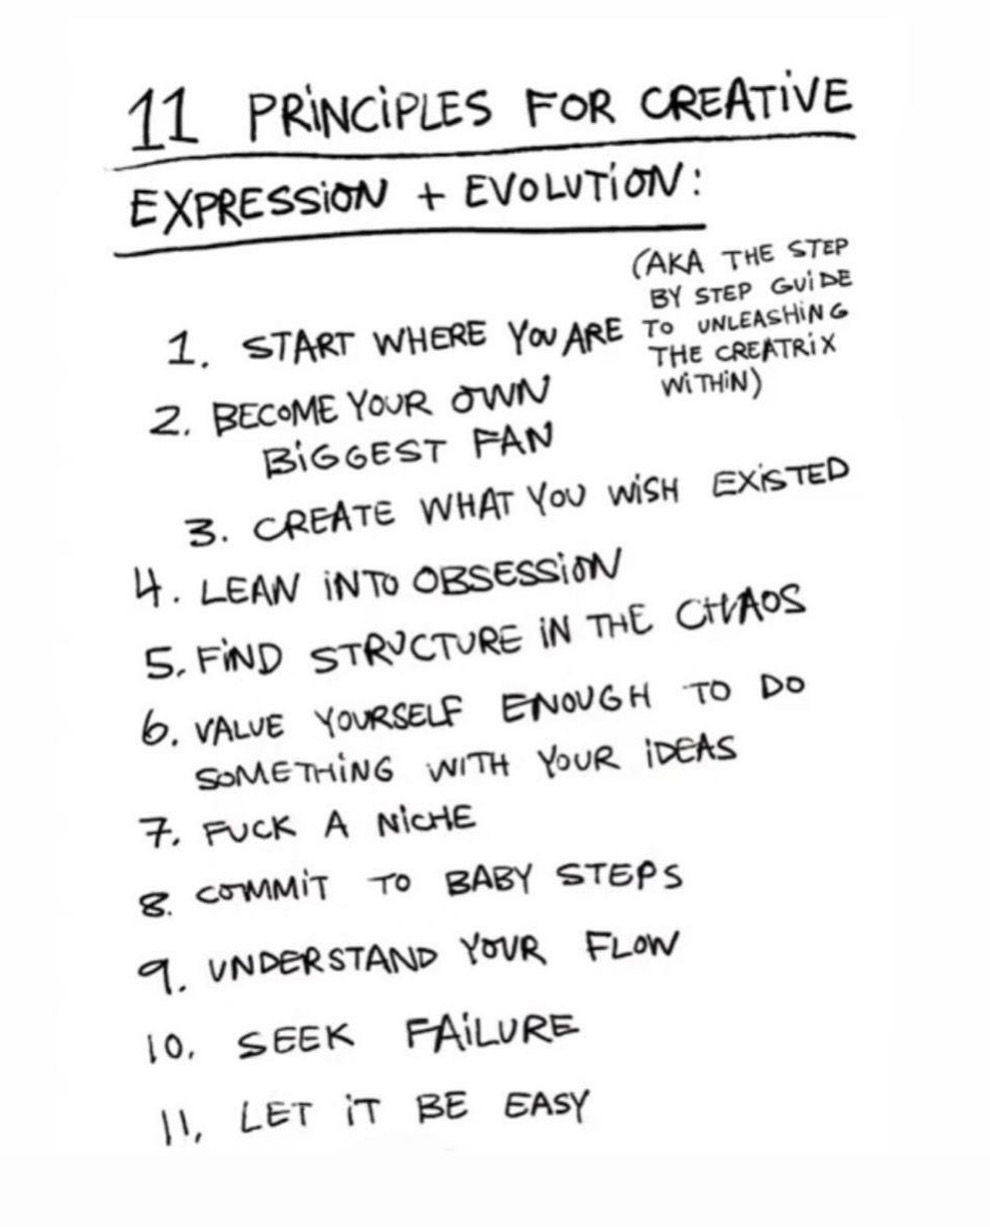 11 PRINCIPLES FOR CREATIVE
EXPRESSION + EVOLUTION:
(AKA THE STEP
BY STEP GUIDE
TO UNLEASHING
THE CREATRIX
WITHIN)
1. START WHERE YOU ARE
2. BECOME YOUR OWN
BIGGEST FAN
3. CREATE WHAT YOU WISH EXISTED
4. LEAN INTO OBSESSION
5. FIND STRUCTURE IN THE CHAOS
6. VALUE YOURSELF ENOUGH TO DO
SOMETHING WITH YOUR IDEAS
7. FUCK A NICHE
8. COMMIT TO BABY STEPS
9. UNDERSTAND YOUR FLOW
10. SEEK FAILURE
11, LET IT BE EASY